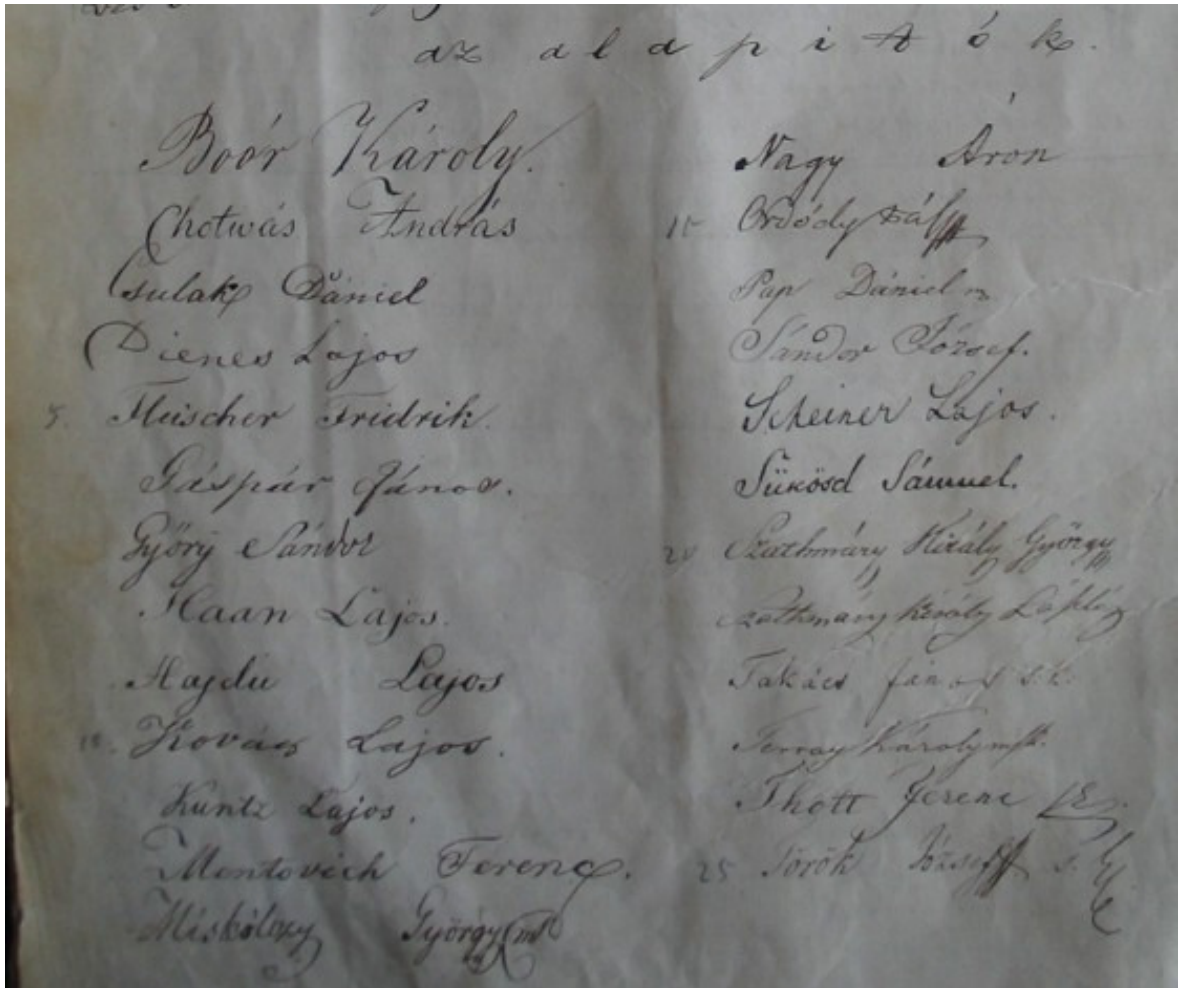 az alapítók.
Boór Károly.
Chotvás András
Csulak Dániel
Dienes Lajos
5. Fleischer Fridrik.
Gáspár János.
Győry Sándor
Haan Lajos.
Hajdu Lajos
10. Kovács Lajos.
Kuntz Lajos.
Mentovich Ferenc.
Miskolczy György mk
Nagy Áron
15 Ordódy Pál
Pap Dániel
Sándor József.
Scheiner Lajos.
Sükösd Sámuel.
20 Szathmáry Király György
Szathmáry Király László
Takács János s. k.
Terray Károly mk.
Thott Ferenc
25 Török József s. k.